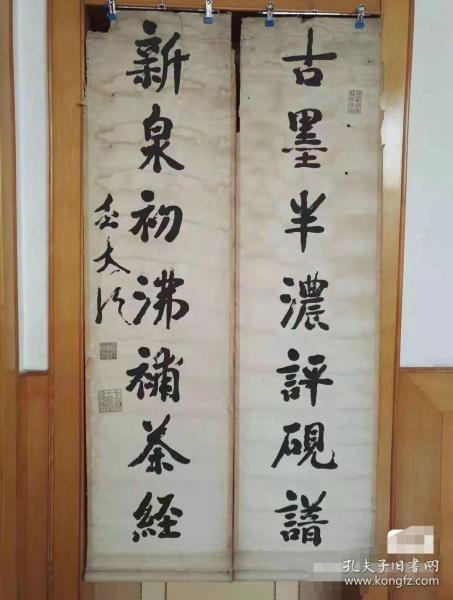 古墨半濃評硯譜
新泉初沸補茶経
孔夫子旧书网
www.kongfz.com